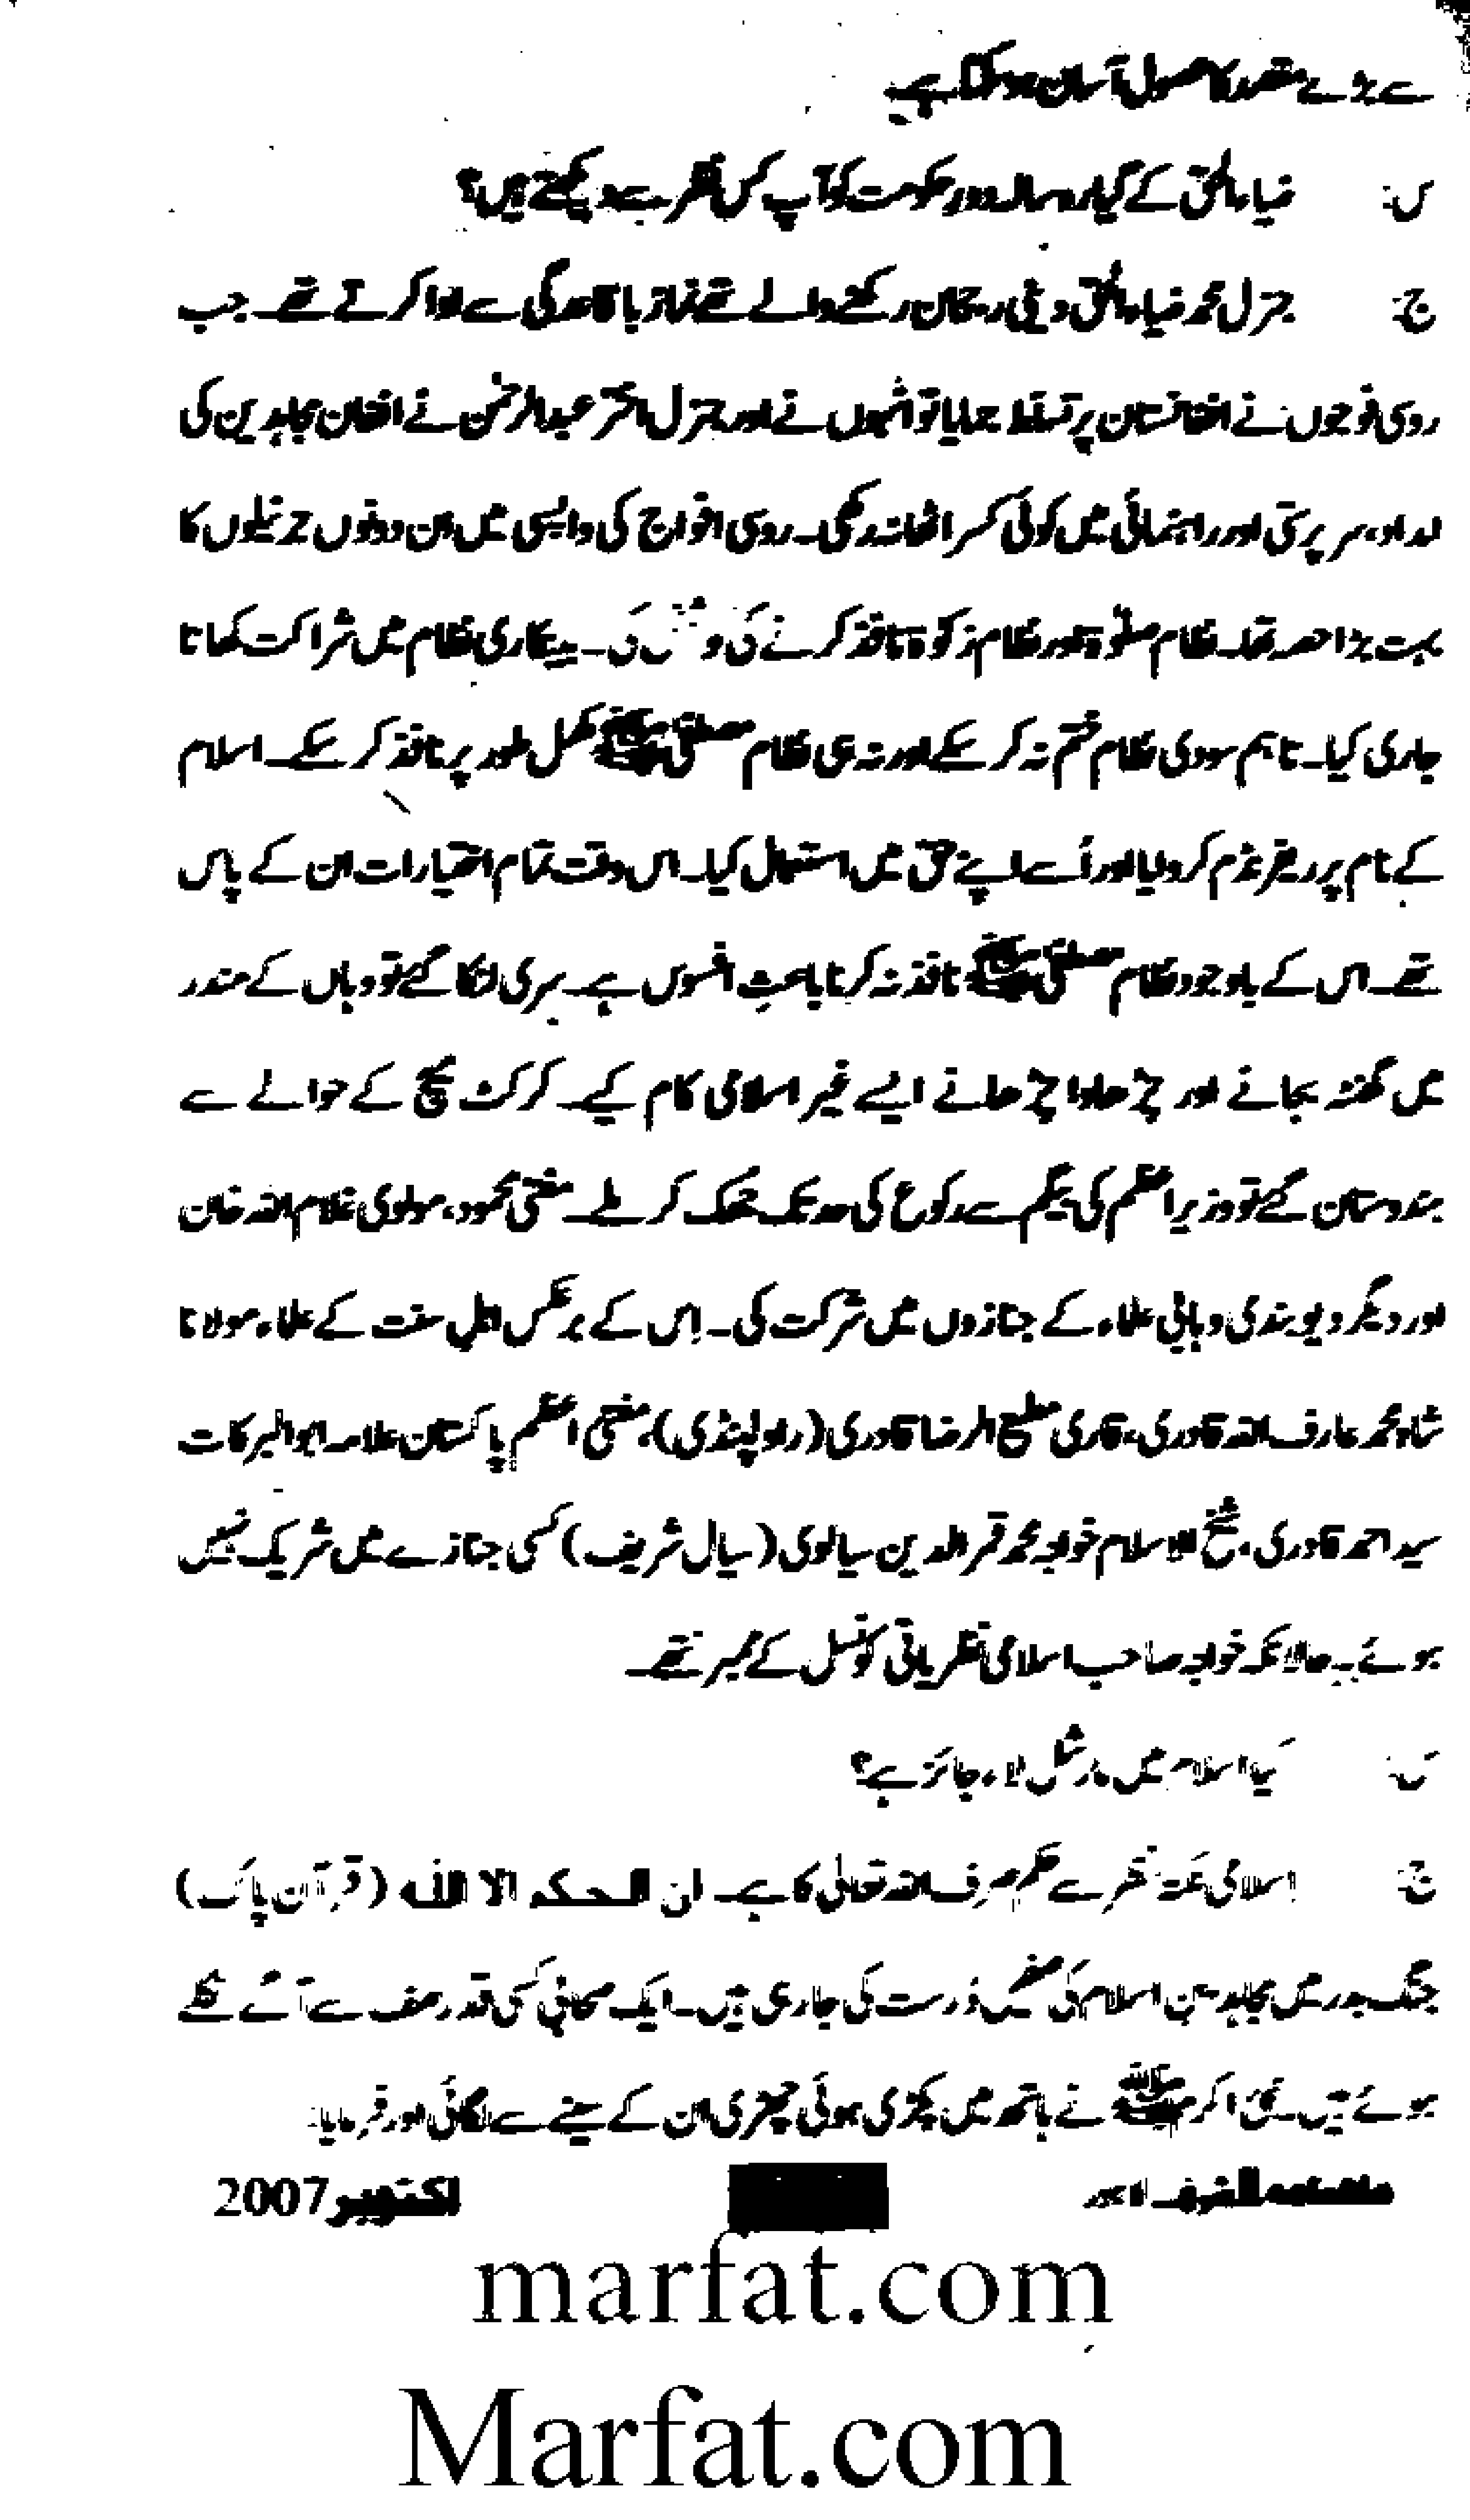 سے بڑے مقصد کا حصول آسان ہو سکتا ہے۔
س: ضیاء الحق کے گیارہ سالہ دور حکومت کو آپ کس نظر سے دیکھتے ہیں؟
ج: جنرل محمد ضیاء الحق دینی رجحان رکھنے والے تھے نماز باقاعدگی سے ادا کرتے تھے۔ جب
روسی فوجوں نے افغانستان پر تسلط جمایا تو انہوں نے اور جنرل اختر عبدالرحمٰن نے افغان مجاہدین کی
امداد، سرپرستی اور راہنمائی میں کوئی کسر اٹھا نہ رکھی۔ روسی افواج کی واپسی میں ان دونوں جرنیلوں کا
بہت بڑا حصہ تھا۔ نظام صلوٰۃ اور نظام زکوٰۃ نافذ کرنے کی کوشش کی۔ بینکاری نظام میں شراکت کھاتا
جاری کیا۔ تاہم سودی نظام ختم نہ کر سکے اور نہ ہی نظام مصطفیٰ ﷺ مکمل طور پر نافذ کر سکے۔ اسلام
کے نام پر ریفرنڈم کروایا اور اُسے اپنے حق میں استعمال کیا۔ اس وقت تمام اختیارات ان کے پاس
تھے۔ اس کے باوجود نظام مصطفیٰ ﷺ نافذ نہ کرنا باعثِ افسوس ہے۔ سری لنکا گئے تو وہاں کے مندر
میں گھنٹہ بجانے اور چڑھاوا چڑھانے ایسے غیر اسلامی کام کیے۔ کرکٹ میچ کے حوالے سے
ہندوستان گئے تو وزیراعظم کی بیگم سے رکوع کی حد تک جھک کر ملے۔ مفتی محمود، مولوی غلام اللہ خان
اور دیگر دیوبندی وہابی علماء کے جنازوں میں شرکت کی۔ اِس کے برعکس اہلِ سنت کے علماء مولانا
شاہ محمد عارف اللہ قادری، قاری مصلح الرضا قادری (راولپنڈی)، مفتی اعظم پاکستان علامہ ابوالبرکات
سید احمد قادری، شیخ الاسلام خواجہ محمد قمر الدین سیالوی (سیال شریف) کسی جنازے میں شریک نہیں
ہوئے۔ حالانکہ خواجہ صاحب اسلامی نظریاتی کونسل کے ممبر تھے۔
س: کیا اسلام میں مارشل لاء جائز ہے؟
ج: اسلامی نقطۂ نظر سے حکم صرف اللہ تعالیٰ کا ہے۔ ان الحکم الا اللہ (قرآن پاک)
جنگ بدر میں مجاہدین اسلام کی صفیں دُرست کی جا رہی ہیں۔ ایک صحابی کسی قدر صف سے آگے نکلے
ہوئے ہیں۔ نبی اکرم ﷺ نے ہاتھ میں پکڑی ہوئی چھڑی ان کے سینے سے لگائی اور فرمایا:
اکتوبر 2007
marfat.com
Marfat.com